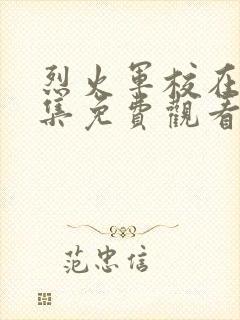 烈火軍校在
集免費觀看
范忠信